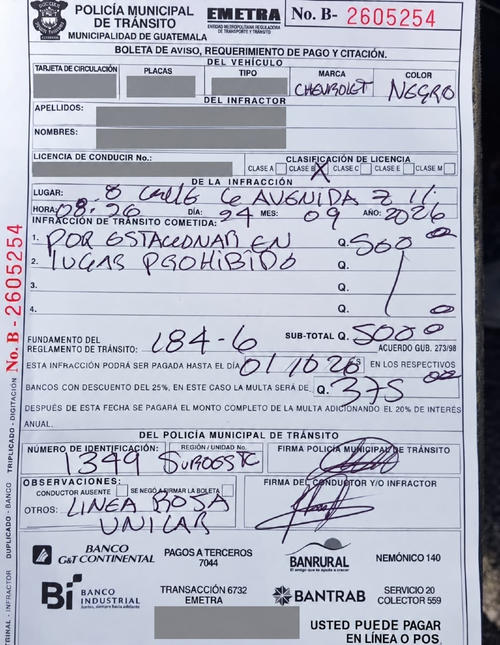 POLICÍA MUNICIPAL
DE TRÁNSITO
MUNICIPALIDAD DE GUATEMALA
EMETRA
ENTIDAD METROPOLITANA REGULADORA
DE TRANSPORTE Y TRÁNSITO
No. B- 2605254
BOLETA DE AVISO, REQUERIMIENTO DE PAGO Y CITACIÓN.
DEL VEHÍCULO
TARJETA DE CIRCULACIÓN PLACAS TIPO MARCA COLOR
CHEVROLET NEGRO
DEL INFRACTOR
APELLIDOS:
NOMBRES:
LICENCIA DE CONDUCIR No.:
CLASIFICACIÓN DE LICENCIA
CLASE A CLASE B X CLASE C CLASE E CLASE M
DE LA INFRACCIÓN
LUGAR: 8 CALLE 6 AVENIDA Z 11
HORA: 08:26 DÍA: 24 MES: 09 AÑO: 2026
INFRACCIÓN DE TRÁNSITO COMETIDA:
1. POR ESTACIONAR EN Q. 500
2. LUGAR PROHIBIDO Q.
3. Q.
4. Q.
FUNDAMENTO DEL
REGLAMENTO DE TRÁNSITO: 184-6 SUB-TOTAL Q. 500
ACUERDO GUB. 273/98
ESTA INFRACCIÓN PODRÁ SER PAGADA HASTA EL DÍA 01/10/26 EN LOS RESPECTIVOS
BANCOS CON DESCUENTO DEL 25%, EN ESTE CASO LA MULTA SERÁ DE Q. 375
DESPUÉS DE ESTA FECHA SE PAGARÁ EL MONTO COMPLETO DE LA MULTA ADICIONANDO EL 20% DE INTERÉS
ANUAL.
DEL POLICÍA MUNICIPAL DE TRÁNSITO
NÚMERO DE IDENTIFICACIÓN: REGIÓN / UNIDAD No. FIRMA POLICÍA MUNICIPAL DE TRÁNSITO
1349 SUROESTE
OBSERVACIONES: FIRMA DEL CONDUCTOR Y/O INFRACTOR
CONDUCTOR AUSENTE SE NEGÓ A FIRMAR LA BOLETA
OTROS: LINEA ROSA
BANCO
G&T CONTINENTAL
PAGOS A TERCEROS
7044
BANRURAL
El amigo que le ayuda a crecer
NEMÓNICO 140
Bi BANCO
INDUSTRIAL
TRANSACCIÓN 6732
EMETRA
BANTRAB
SERVICIO 20
COLECTOR 559
USTED PUEDE PAGAR
EN LÍNEA O POS
No. B - 2605254
DUPLICADO - BANCO TRIPLICADO - DIGITACIÓN